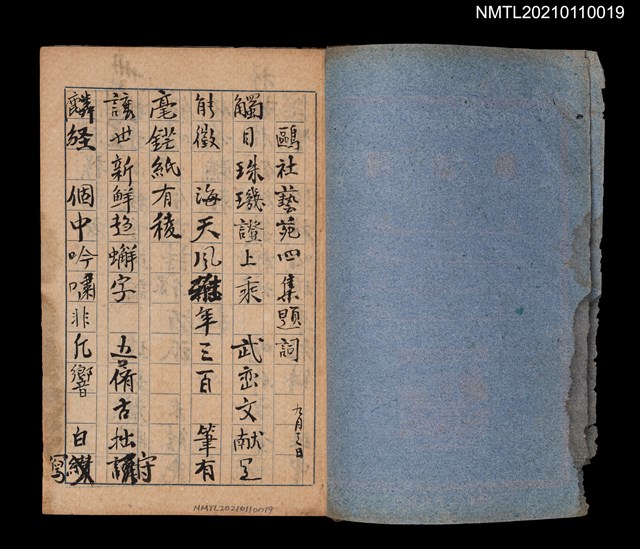 NMTL20210110019
鷗社藝苑四集題詞 九月三日
觸目珠璣證上乘 武巒文献足
能徵 海天風雅年三百 筆有
毫鋩紙有稜
讓世新鮮趋蠏字 五 古拙守
麟経 個中吟嘯非凡響 白
寫
NMTL20210110019